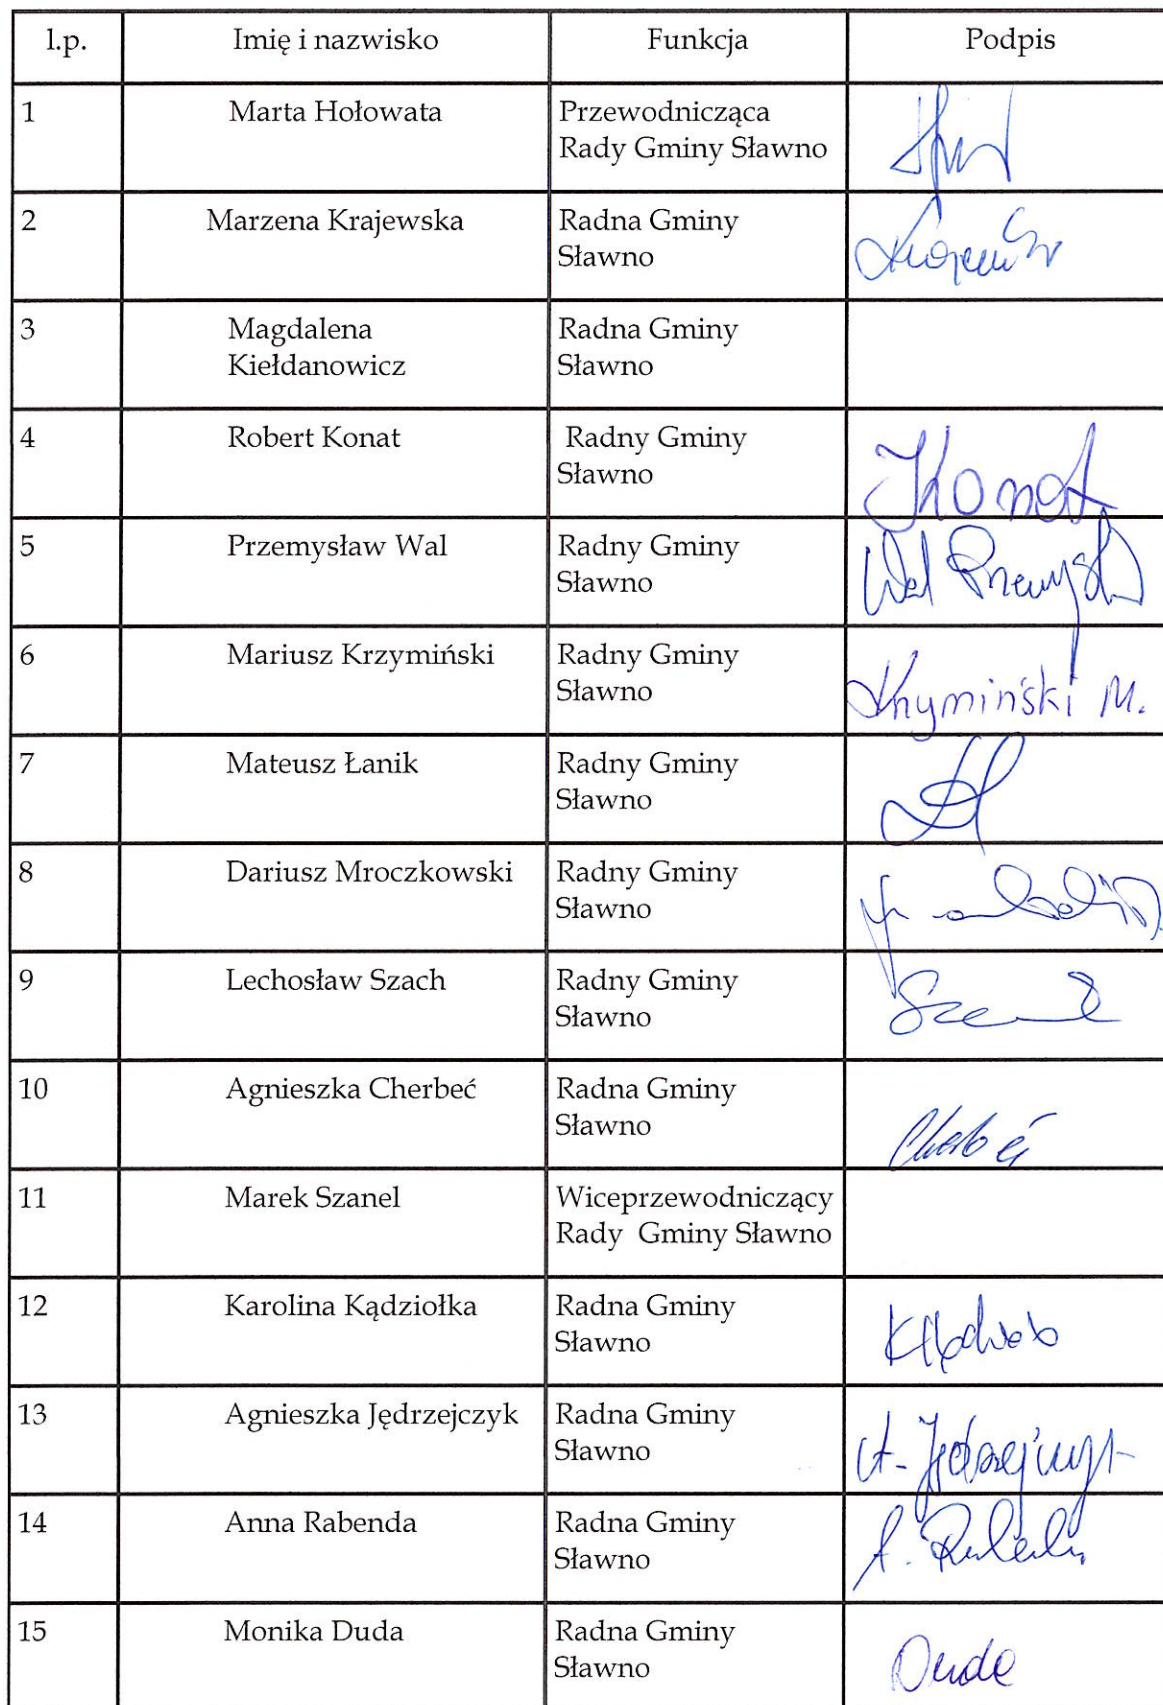 l.p. Imię i nazwisko Funkcja Podpis
1 Marta Hołowata Przewodnicząca
Rady Gminy Sławno
2 Marzena Krajewska Radna Gminy
Sławno
3 Magdalena Radna Gminy
Kiełdanowicz Sławno
4 Robert Konat Radny Gminy
Sławno
Konat
5 Przemysław Wal Radny Gminy
Sławno
Wal Przemysł
6 Mariusz Krzymiński Radny Gminy
Sławno
Krzymiński M.
7 Mateusz Łanik Radny Gminy
Sławno
8 Dariusz Mroczkowski Radny Gminy
Sławno
9 Lechosław Szach Radny Gminy
Sławno
10 Agnieszka Cherbeć Radna Gminy
Sławno
Cherbeć
11 Marek Szanel Wiceprzewodniczący
Rady Gminy Sławno
12 Karolina Kądziołka Radna Gminy
Sławno
13 Agnieszka Jędrzejczyk Radna Gminy
Sławno
A. Jędrzejczyk
14 Anna Rabenda Radna Gminy
Sławno
A. Rabenda
15 Monika Duda Radna Gminy
Sławno
Duda